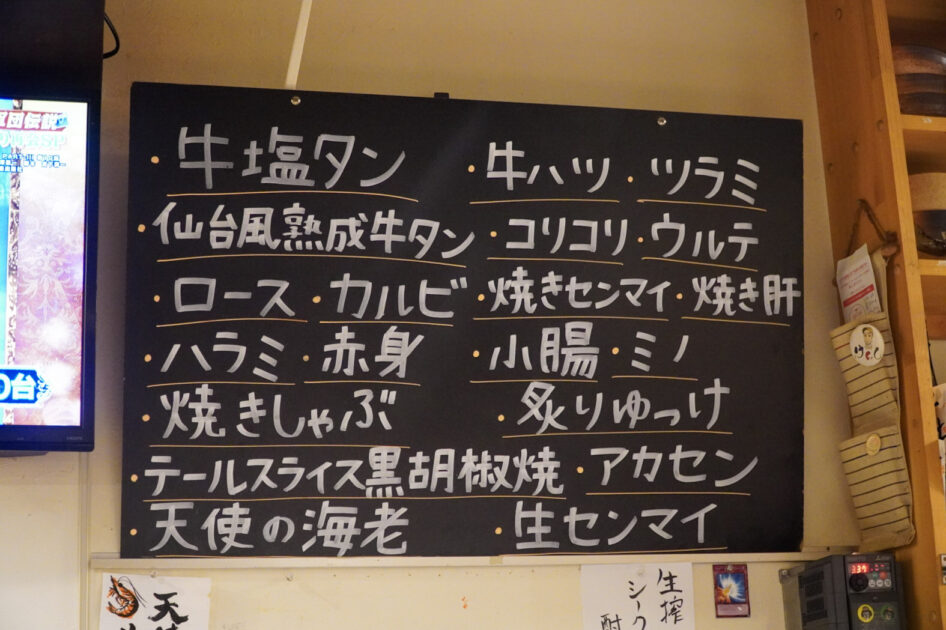 ・牛塩タン ・牛ハツ ・ツラミ
・仙台風熟成牛タン ・コリコリ ・ウルテ
・ロース ・カルビ ・焼きセンマイ ・焼き肝
・ハラミ ・赤身 ・小腸 ・ミノ
・焼きしゃぶ ・炙りゆっけ
・テールスライス黒胡椒焼 ・アカセン
・天使の海老 ・生センマイ
団伝説
0台
天
生搾
シーク
酎